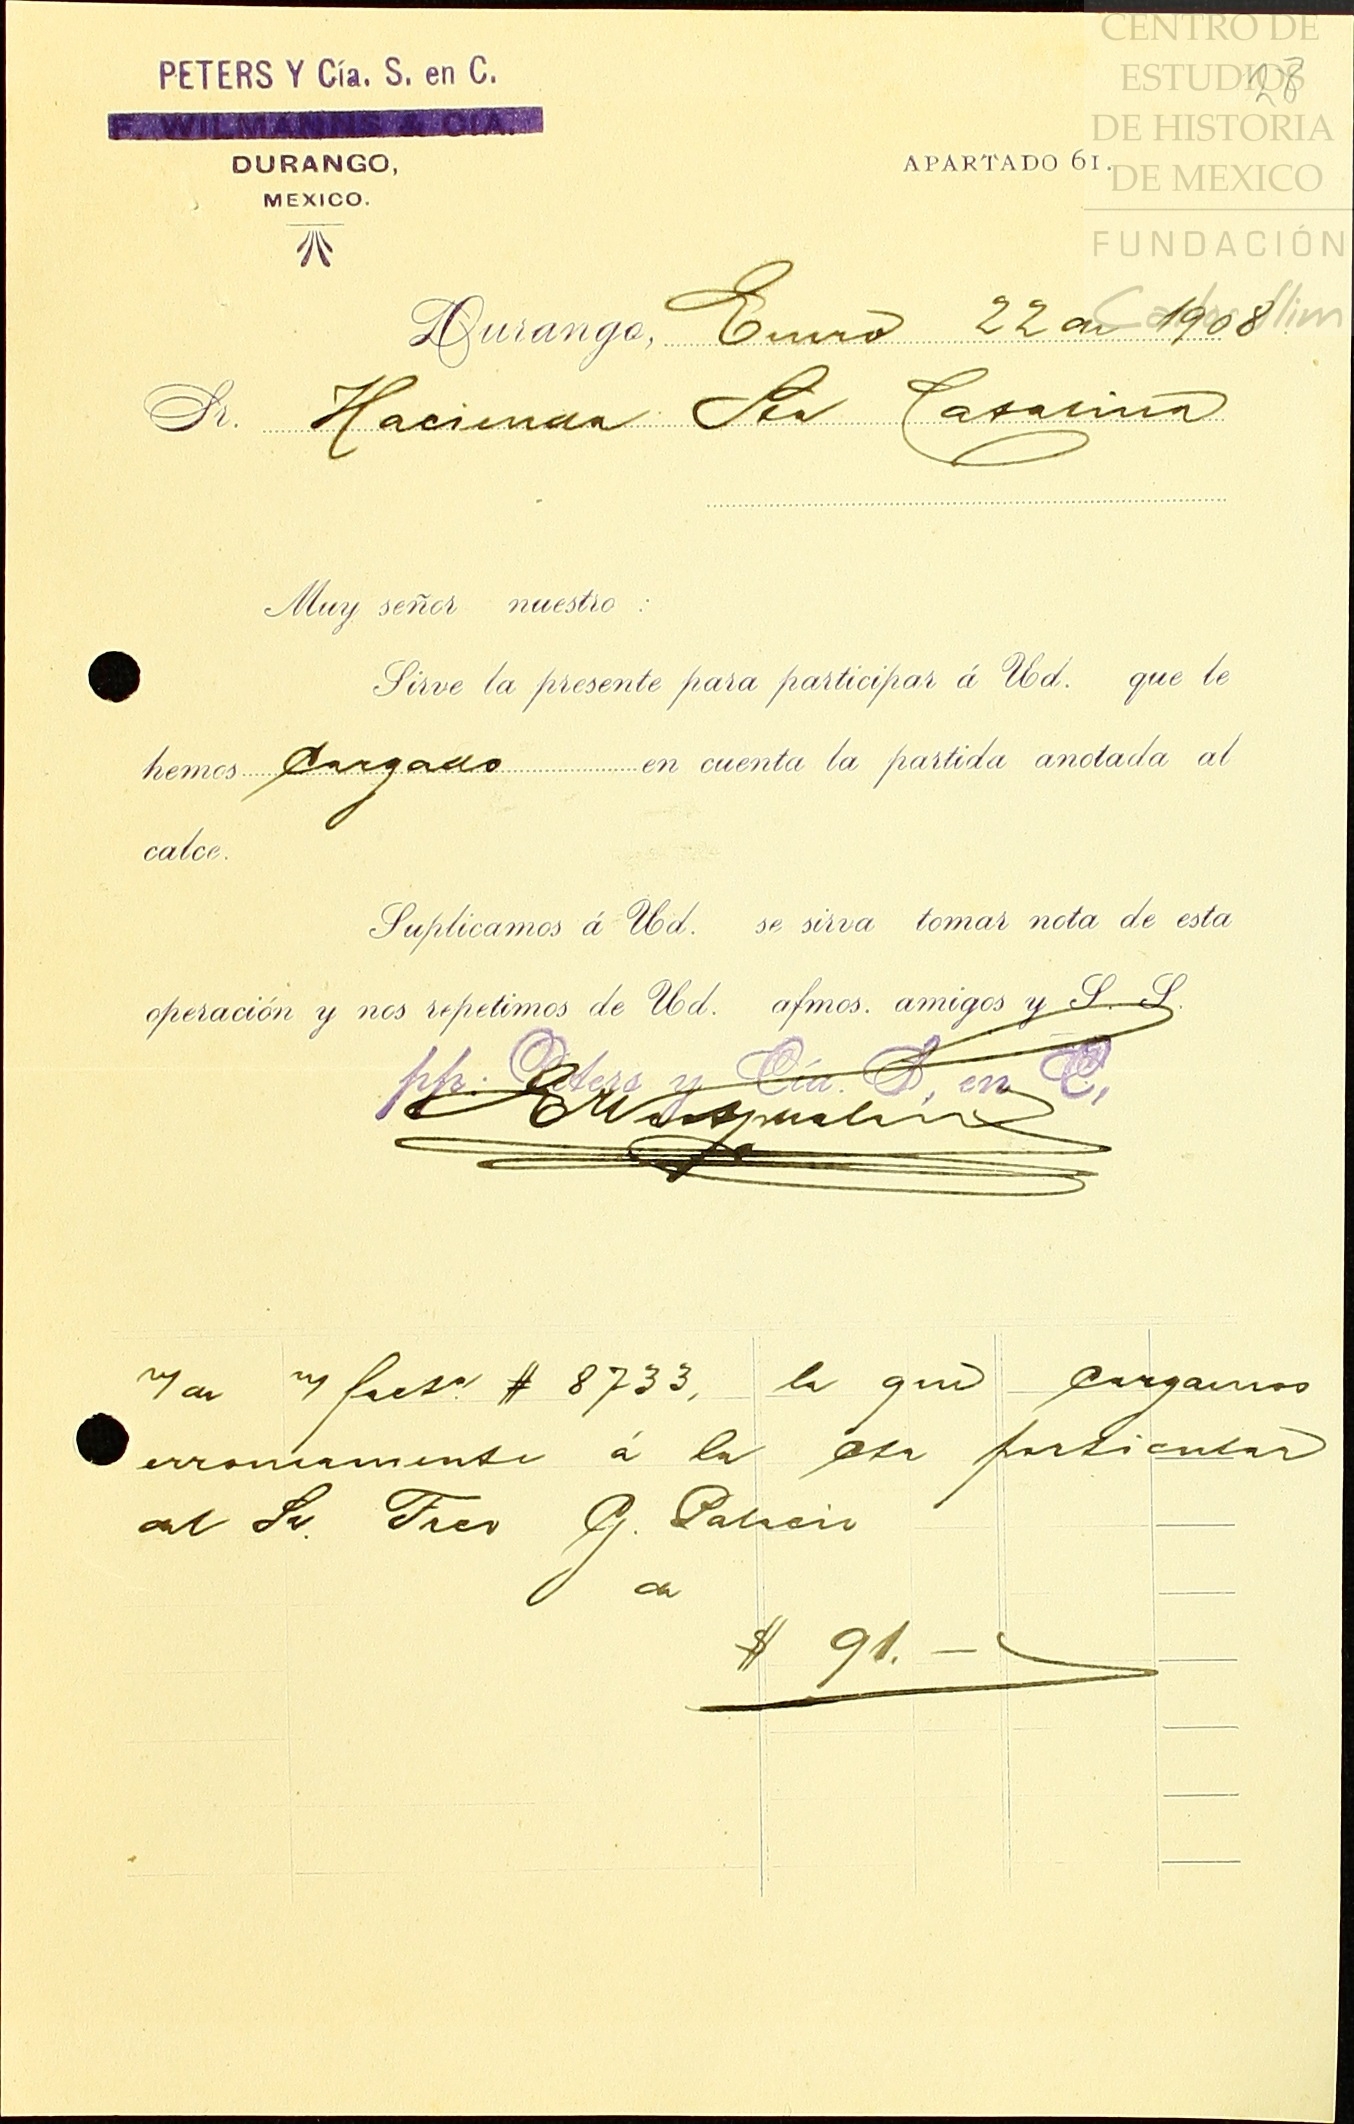 CENTRO DE
ESTUDIOS
DE HISTORIA
DE MEXICO
FUNDACIÓN
Carlos Slim
28
PETERS Y Cía. S. en C.
F. WILMANNS & CIA.
DURANGO,
MEXICO.
APARTADO 61.
Durango, Enero 22 de 1908
Sr. Hacienda Sta Catarina
Muy señor nuestro:
Sirve la presente para participar á Ud. que le
hemos Cargado en cuenta la partida anotada al
calce.
Suplicamos á Ud. se sirva tomar nota de esta
operación y nos repetimos de Ud. afmos. amigos y S. S.
pp. Peters y Cía. S. en C.
de n/ fact.ª # 8733, la que Cargamos
erroneamente á la Cta particular
del Sr. Fco G. Palacio
de
$ 91.—